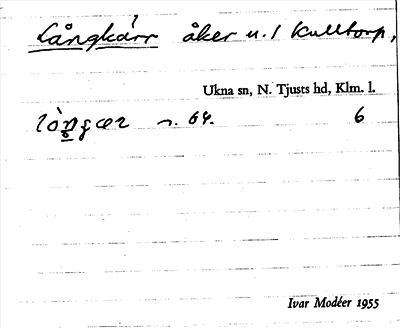 Långkärr åker u./ Kulltorp,
Ukna sn, N. Tjusts hd, Klm. l.
n. 64. 6
Ivar Modéer 1955